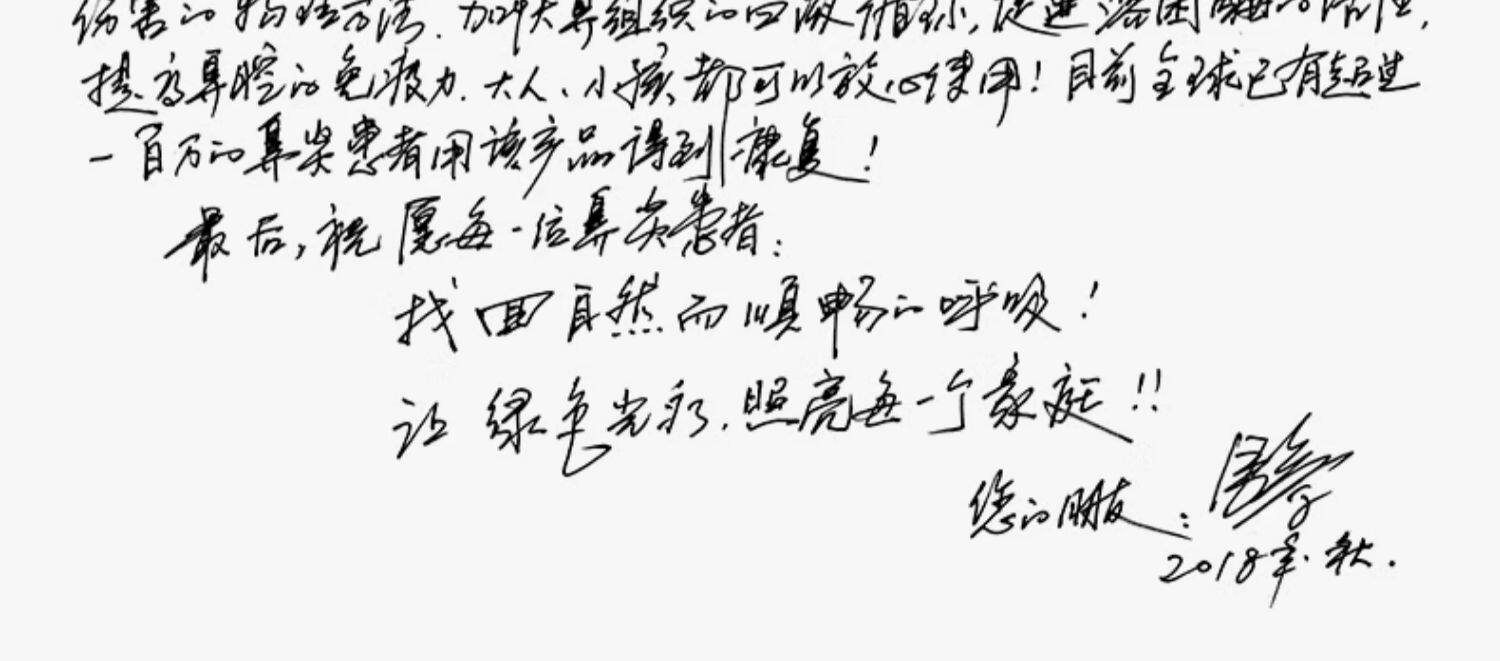 伤害的物理方法.加快鼻组织的血液循环,促进溶菌酶的活性,
提高鼻腔的免疫力.大人、小孩都可以放心使用!目前全球已有超过
一百万的鼻炎患者用该产品得到康复!
最后,祝愿每一位鼻炎患者:
找回自然而顺畅的呼吸!
让绿色光彩.照亮每一个家庭!!
您的朋友:
2018年.秋.